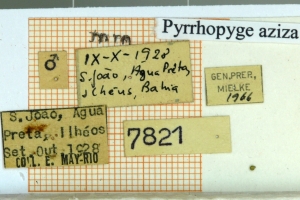 Pyrrhopyge aziza
♂
IX-X-1928
S. João, Agua Preta,
Ilhéus, Bahia
GEN. PREP.
MIELKE
1966
S. João, Agua
Preta, Ilhéos
Set. Out. 1928
COLL. E. MAY-RIO
7821